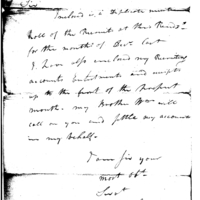 Sir
Inclosed is a Duplicate muster
Roll of the Recruit at this Rendz
for the month of Decr last
I have also inclosed my Recruiting
accounts Inlistments and receipts
up to the first of the present
month. my Brother Wm will
call on you and settle my accounts
in my behalf.
I am Sir your
most Obt
Servt